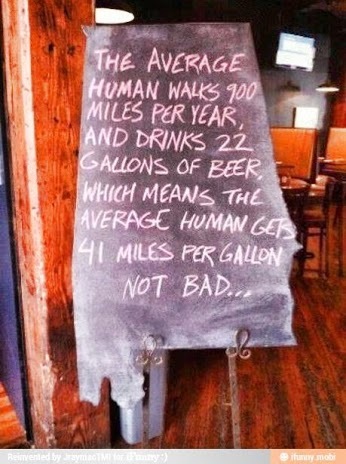 THE AVERAGE
HUMAN WALKS 900
MILES PER YEAR,
AND DRINKS 22
GALLONS OF BEER,
WHICH MEANS THE
AVERAGE HUMAN GETS
41 MILES PER GALLON
NOT BAD...
Reinvented by JraymanTMI for iFunny :)
ifunny.mobi